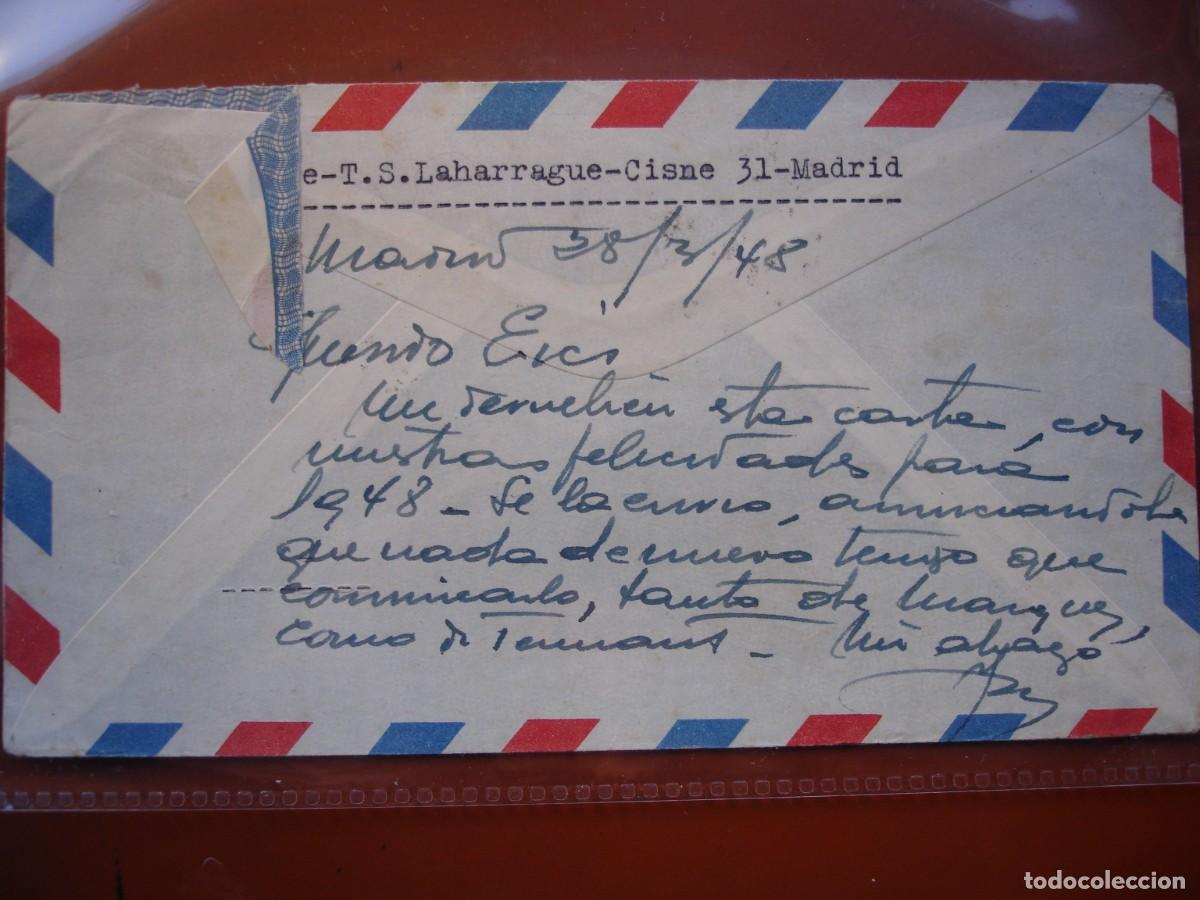 e-T.S.Laharrague-Cisne 31-Madrid
Madrid 28/3/48
Querido
Me devuelven esta carta, con
nuestras felicidades para
1948 - Se la envio, anunciandole
que nada de nuevo tengo que
comunicarle, tanto de Marquez,
como de Tennant - Un abrazo
todocoleccion